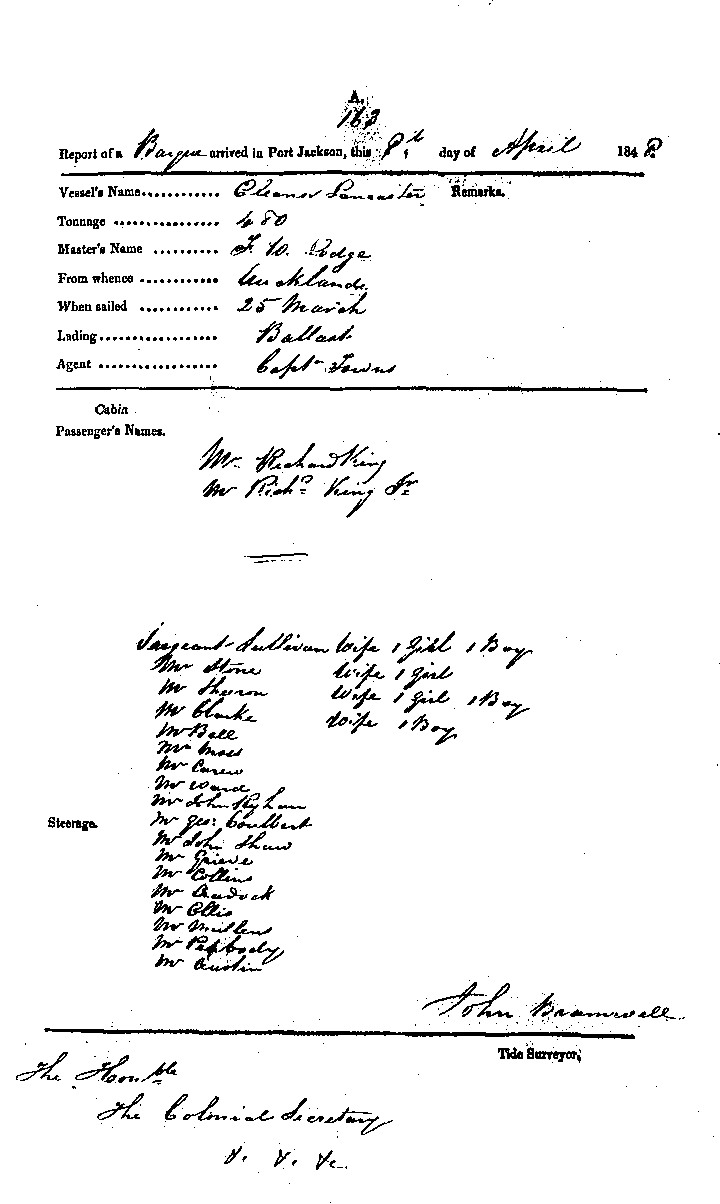 A.
163
Report of a Barque arrived in Port Jackson, this 8th day of April 1848.
Vessel's Name............ Eleanor Lancaster Remarks.
Tonnage ................ 480
Master's Name .......... F. W. Lodge
From whence ............ Auckland
When sailed ............ 25 March
Lading.................. Ballast
Agent .................. Captn Towns
Cabin
Passenger's Names.
Mr Richard King
Mr Richd King Jr
Sargeant Sullivan Wife 1 Girl 1 Boy
Mr Stone Wife 1 Girl
Mr Wife 1 Girl 1 Boy
Mr Clarke Wife 1 Boy
Mr Ball
Moss
Mr Carew
Mr Ward
Mr John
Steerage. Mr Geo: Coulbert
Mr John Shaw
Mr Grieve
Mr Collins
Mr
Mr Ellis
Mr Mullens
Mr Peabody
Mr Austin
John Bramwell
Tide Surveyor,
The Honble
The Colonial Secretary
&. &. &c.